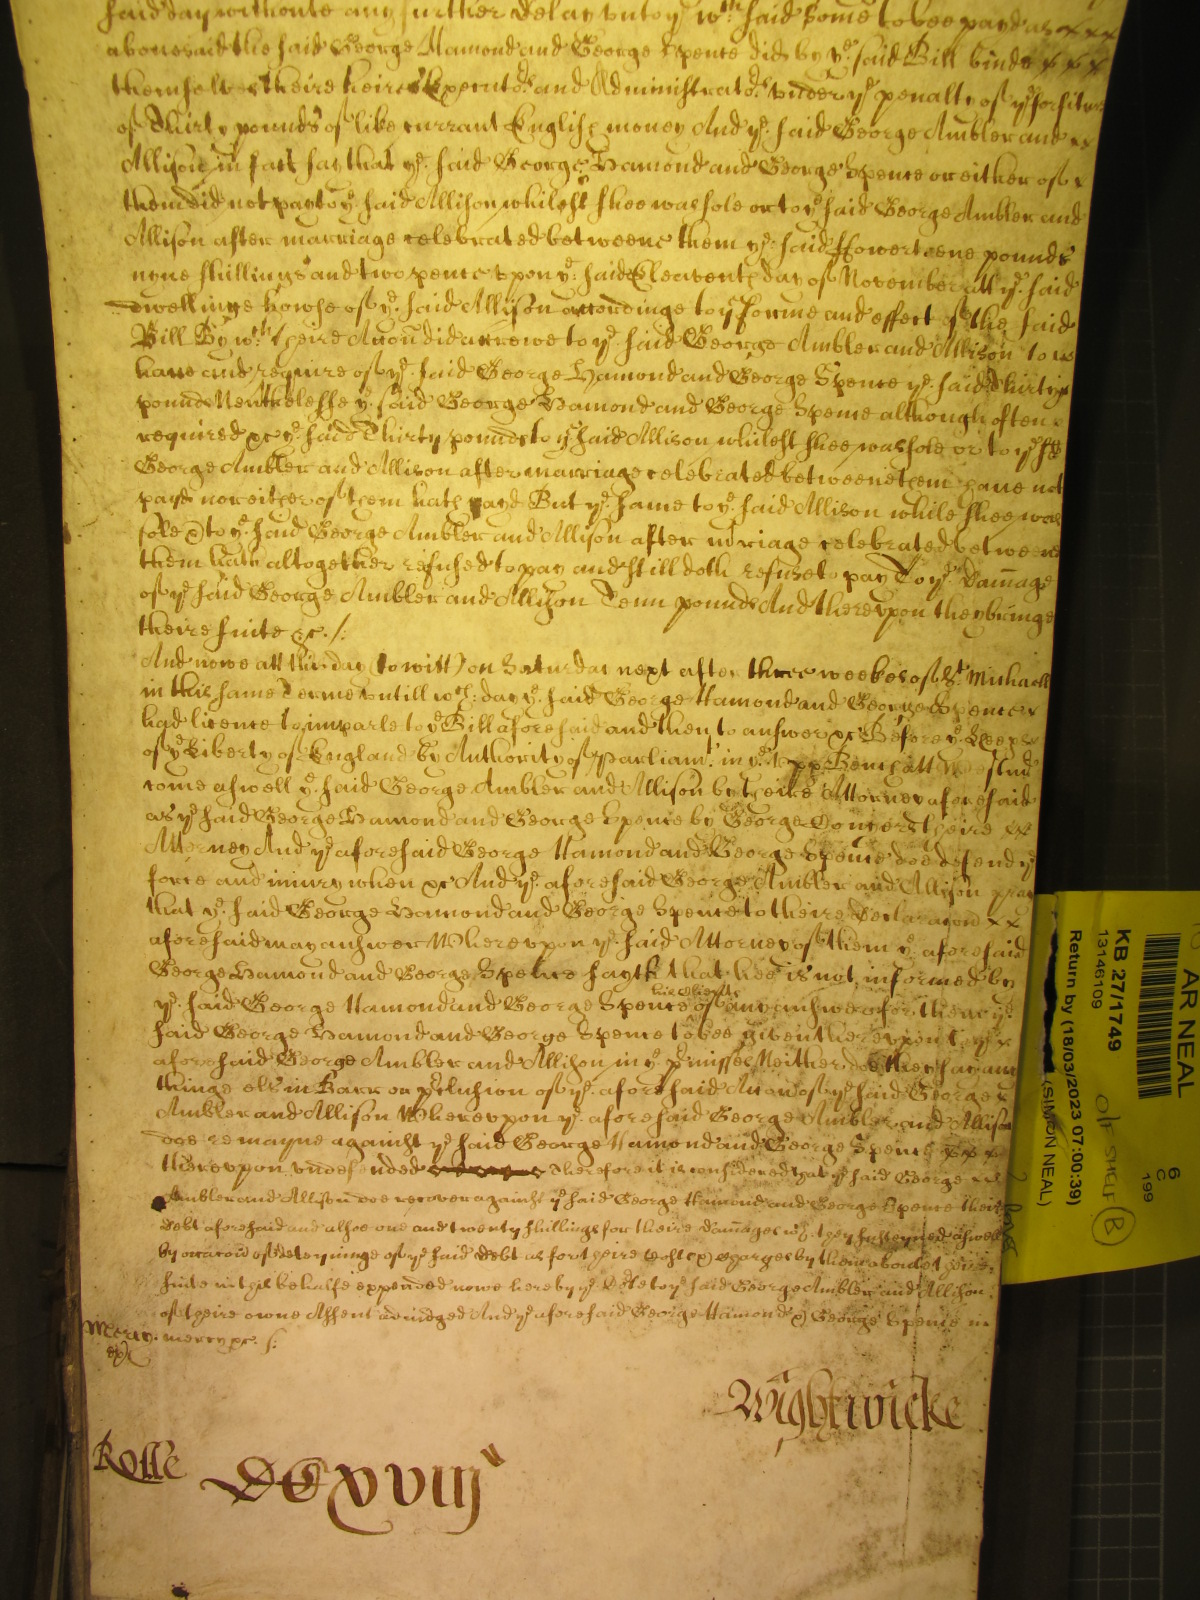 said day withoute any further delay unto ye wch said some to bee payd as xxx
abovesaid the said George Hamond and George Spence did by ye said Bill binde xxx
themselves theire heires Executors and Administrators under ye penalty of ye forfiture
of Thirty pounds of like currant English money And ye said George Ambler and xx
Allison in fact say that ye said George Hamond and George Spence or either of x
them did not pay to ye said Allison whilest shee was sole or to ye said George Ambler and
Allison after marriage celebrated betweene them ye said ffowerteene pounds
nyne shillings and two pence upon ye said Eleaventh day of November att ye said
dwellinge howse of ye said Allison accordinge to ye forme and effect of the said
Bill By wch theire Accon did accrewe to ye said George Ambler and Allison to
have and require of ye said George Hamond and George Spence ye said Thirty
pounds Neverthelesse ye said George Hamond and George Spence although often
required &c ye said Thirty pounds to ye said Allison whilest shee was sole or to ye sd
George Ambler and Allison after marriage celebrated betweene them have not
payd nor either of them hath payd But ye same to ye said Allison while shee was
sole & to ye said George Ambler and Allison after mariage celebrated betweene
them hath altogether refused to pay and still doth refuse to pay To ye Damage
of ye said George Ambler and Allison Tenn pounds And thereupon they bringe
theire suite &c. /:
And nowe att this day (to witt) on Saturday next after three weekes of St Michaell
in this same Terme untill wch day ye said George Hamond and George Spence x
had licence to imparle to ye Bill aforesaid and then to answer &c Before ye Keepers
of ye Liberty of England by Authority of Parliamt in ye upper Bench att Westmr
come aswell ye said George Ambler and Allison by theire Attorney aforesaid
as ye said George Hamond and George Spence by George theire xx
Attorney And ye aforesaid George Hamond and George Spence doe defend ye
force and iniury when &c And ye aforesaid George Ambler and Allison pray
that ye said George Hamond and George Spence to theire declaracon xx
aforesaid may answer Whereupon ye said Attorney of them ye aforesaid
George Hamond and George Spence sayth that hee is not informed by
ye said George Hamond and George Spence his clients of any answer for them ye
said George Hamond and George Spence to bee given thereupon to ye x
aforesaid George Ambler and Allison in ye pmisses Neither doe they say any
thinge els in Barr or preclusion of ye aforesaid Accon of ye said George x
Ambler and Allison Whereupon ye aforesaid George Ambler and Allison
doe remayne against ye said George Hamond and George Spence xxx
thereupon undefended Therefore it is considered that ye said George
Ambler and Allison doe recover against ye said George Hamond and George Spence theire
debt aforesaid and alsoe one and twenty shillings for theire damages wch they susteyned aswell
by occacon of deteyninge of ye said debt as for theire costs & charges by them about theire
suite in this behalfe expended nowe here by ye Court to ye said George Ambler and Allison
of theire owne Assent adiudged And ye aforesaid George Hamond & George Spence in
mercy &c. /:
Mercy
Wightwicke
Rolle DCxviijn
AR NEAL
6
C
199
KB 27/1749
13146109
Return by (18/03/2023 07:00:39)
(SIMON NEAL)
B